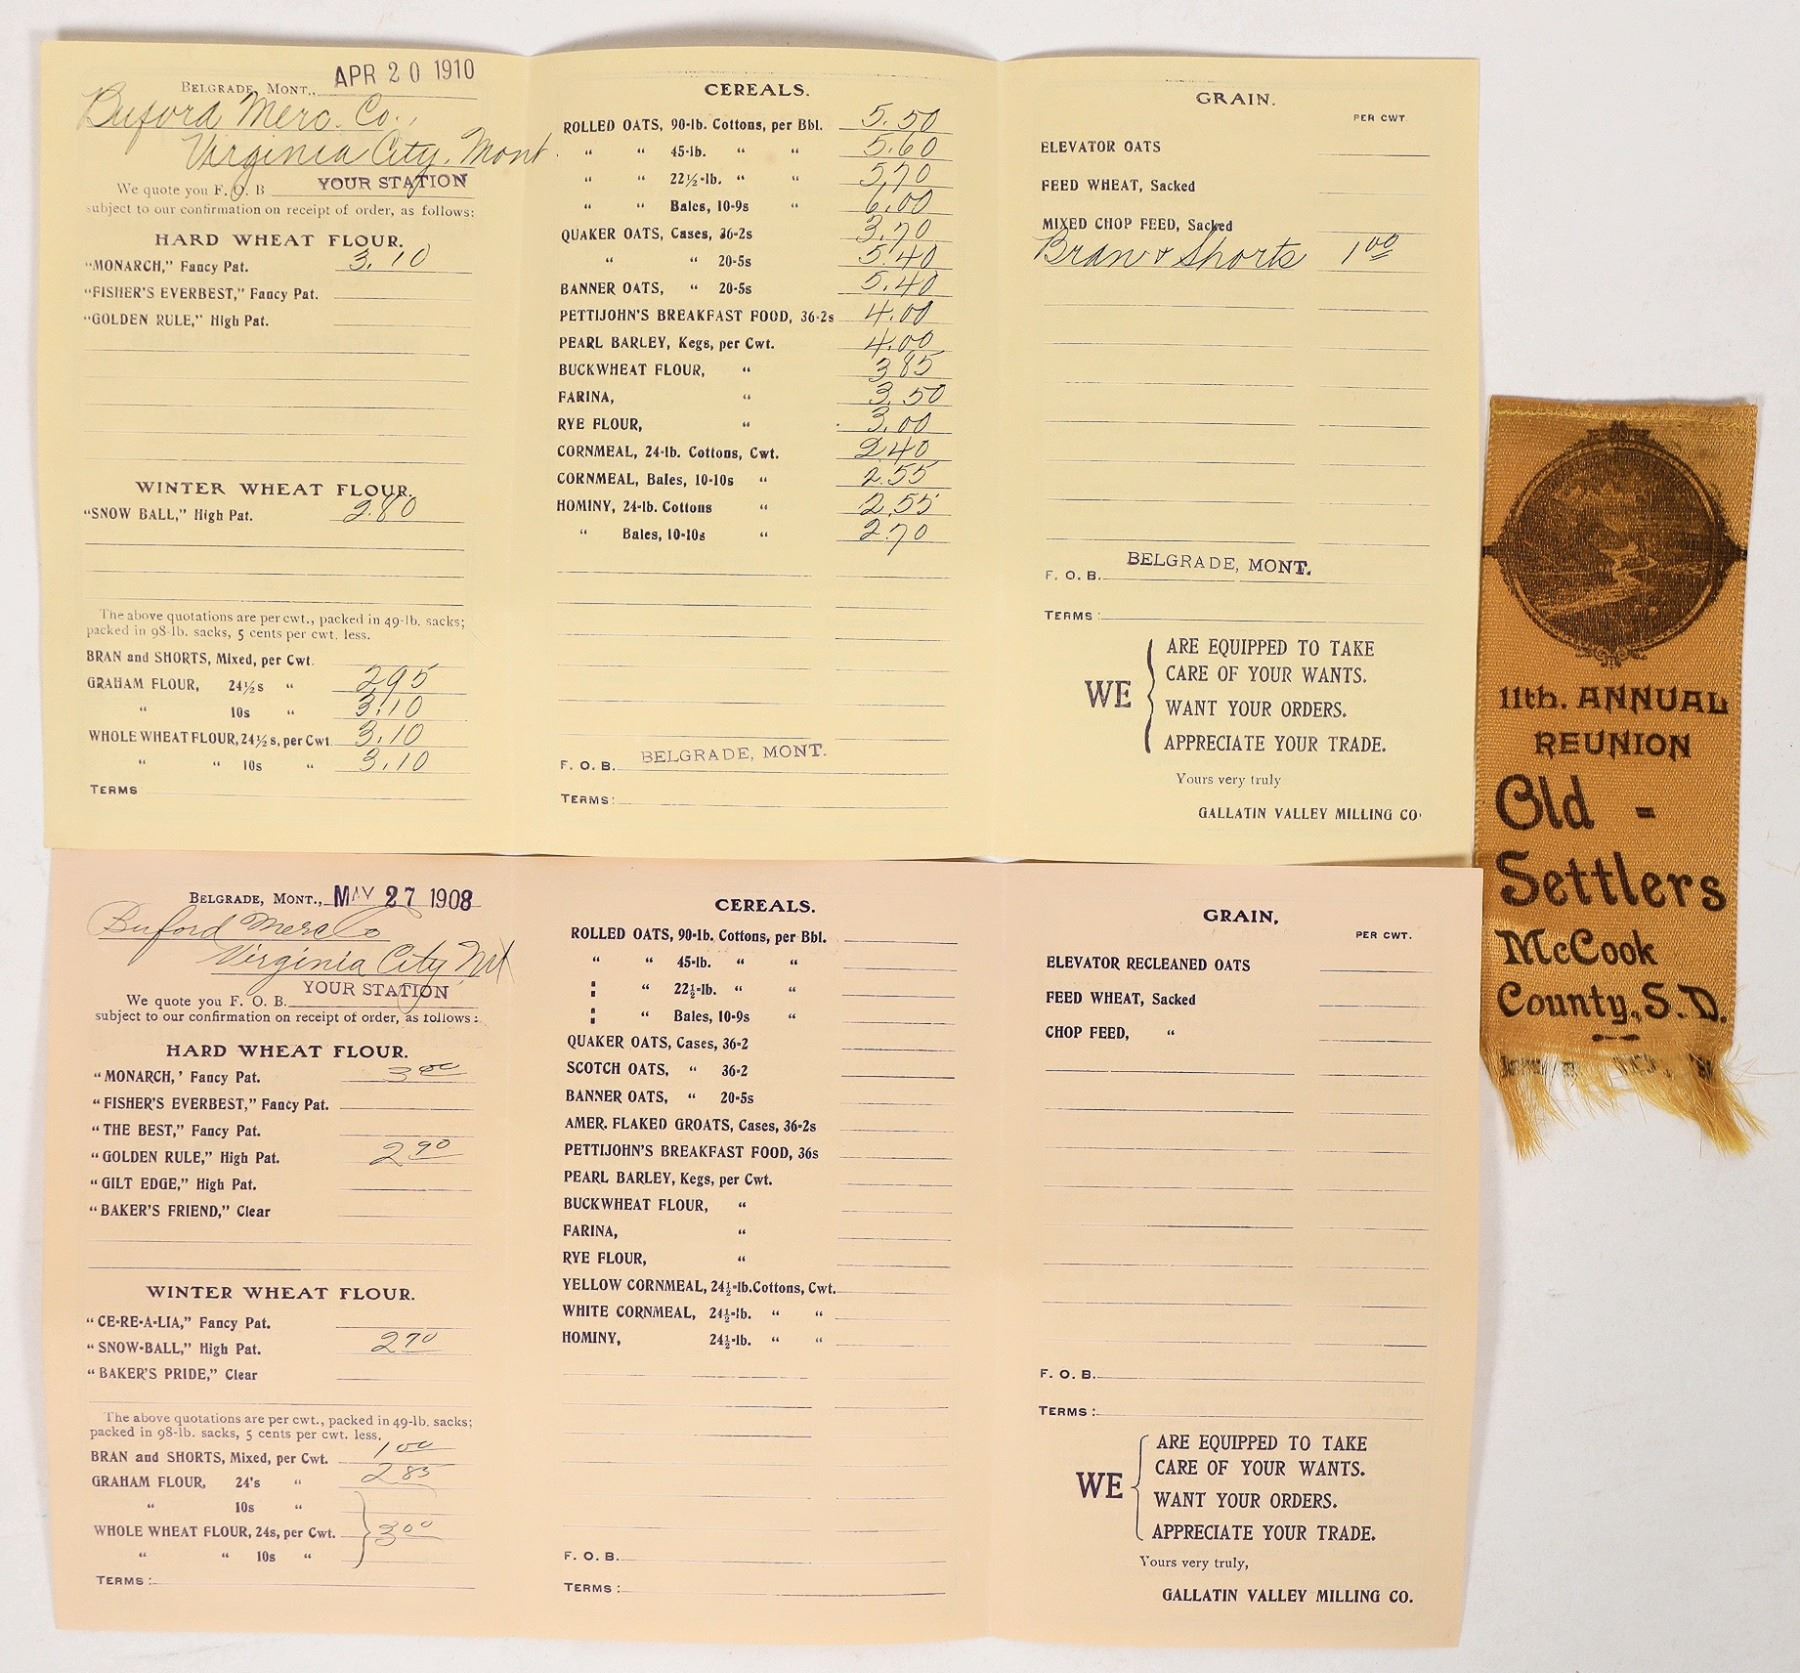 BELGRADE, MONT., APR 20 1910
Buford Merc. Co.,
Virginia City, Mont.
We quote you F. O. B YOUR STATION
subject to our confirmation on receipt of order, as follows:
HARD WHEAT FLOUR.
"MONARCH," Fancy Pat. 3.10
"FISHER'S EVERBEST," Fancy Pat.
"GOLDEN RULE," High Pat.
WINTER WHEAT FLOUR.
"SNOW BALL," High Pat. 2.80
The above quotations are per cwt., packed in 49-lb. sacks;
packed in 98-lb. sacks, 5 cents per cwt. less.
BRAN and SHORTS, Mixed, per Cwt.
GRAHAM FLOUR, 24½s " 2.95
" 10s " 3.10
WHOLE WHEAT FLOUR, 24½s, per Cwt. 3.10
" " 10s " 3.10
TERMS
CEREALS.
ROLLED OATS, 90-lb. Cottons, per Bbl. 5.50
" " 45-lb. " " 5.60
" " 22½-lb. " " 5.70
" " Bales, 10-9s " 6.00
QUAKER OATS, Cases, 36-2s 3.70
" " 20-5s 5.40
BANNER OATS, " 20-5s 5.40
PETTIJOHN'S BREAKFAST FOOD, 36-2s 4.00
PEARL BARLEY, Kegs, per Cwt. 4.00
BUCKWHEAT FLOUR, " 3.85
FARINA, " 3.50
RYE FLOUR, " 3.00
CORNMEAL, 24-lb. Cottons, Cwt. 2.40
CORNMEAL, Bales, 10-10s " 2.55
HOMINY, 24-lb. Cottons " 2.55
" Bales, 10-10s " 2.70
F. O. B. BELGRADE, MONT.
TERMS:
GRAIN.
PER CWT
ELEVATOR OATS
FEED WHEAT, Sacked
MIXED CHOP FEED, Sacked
Bran & Shorts 1 00
F. O. B. BELGRADE, MONT.
TERMS:
WE
ARE EQUIPPED TO TAKE
CARE OF YOUR WANTS.
WANT YOUR ORDERS.
APPRECIATE YOUR TRADE.
Yours very truly
GALLATIN VALLEY MILLING CO.
11th. ANNUAL
REUNION
Old -
Settlers
McCook
County, S. D.
BELGRADE, MONT., MAY 27 1908
Buford Merc Co
Virginia City Mt
We quote you F. O. B. YOUR STATION
subject to our confirmation on receipt of order, as follows:
HARD WHEAT FLOUR.
"MONARCH,' Fancy Pat. 3 00
"FISHER'S EVERBEST," Fancy Pat.
"THE BEST," Fancy Pat.
"GOLDEN RULE," High Pat. 2 90
"GILT EDGE," High Pat.
"BAKER'S FRIEND," Clear
WINTER WHEAT FLOUR.
"CE-RE-A-LIA," Fancy Pat.
"SNOW-BALL," High Pat. 2 70
"BAKER'S PRIDE," Clear
The above quotations are per cwt., packed in 49-lb. sacks;
packed in 98-lb. sacks, 5 cents per cwt. less.
BRAN and SHORTS, Mixed, per Cwt. 1 00
GRAHAM FLOUR, 24's " 2 85
" 10s "
WHOLE WHEAT FLOUR, 24s, per Cwt. 3 00
" " 10s "
TERMS:
CEREALS.
ROLLED OATS, 90-lb. Cottons, per Bbl.
" " 45-lb. " "
" " 22½-lb. " "
" " Bales, 10-9s "
QUAKER OATS, Cases, 36-2
SCOTCH OATS, " 36-2
BANNER OATS, " 20-5s
AMER. FLAKED GROATS, Cases, 36-2s
PETTIJOHN'S BREAKFAST FOOD, 36s
PEARL BARLEY, Kegs, per Cwt.
BUCKWHEAT FLOUR, "
FARINA, "
RYE FLOUR, "
YELLOW CORNMEAL, 24½-lb. Cottons, Cwt.
WHITE CORNMEAL, 24½-lb. " "
HOMINY, 24½-lb. " "
F. O. B.
TERMS:
GRAIN.
PER CWT.
ELEVATOR RECLEANED OATS
FEED WHEAT, Sacked
CHOP FEED, "
F. O. B.
TERMS:
WE
ARE EQUIPPED TO TAKE
CARE OF YOUR WANTS.
WANT YOUR ORDERS.
APPRECIATE YOUR TRADE.
Yours very truly,
GALLATIN VALLEY MILLING CO.